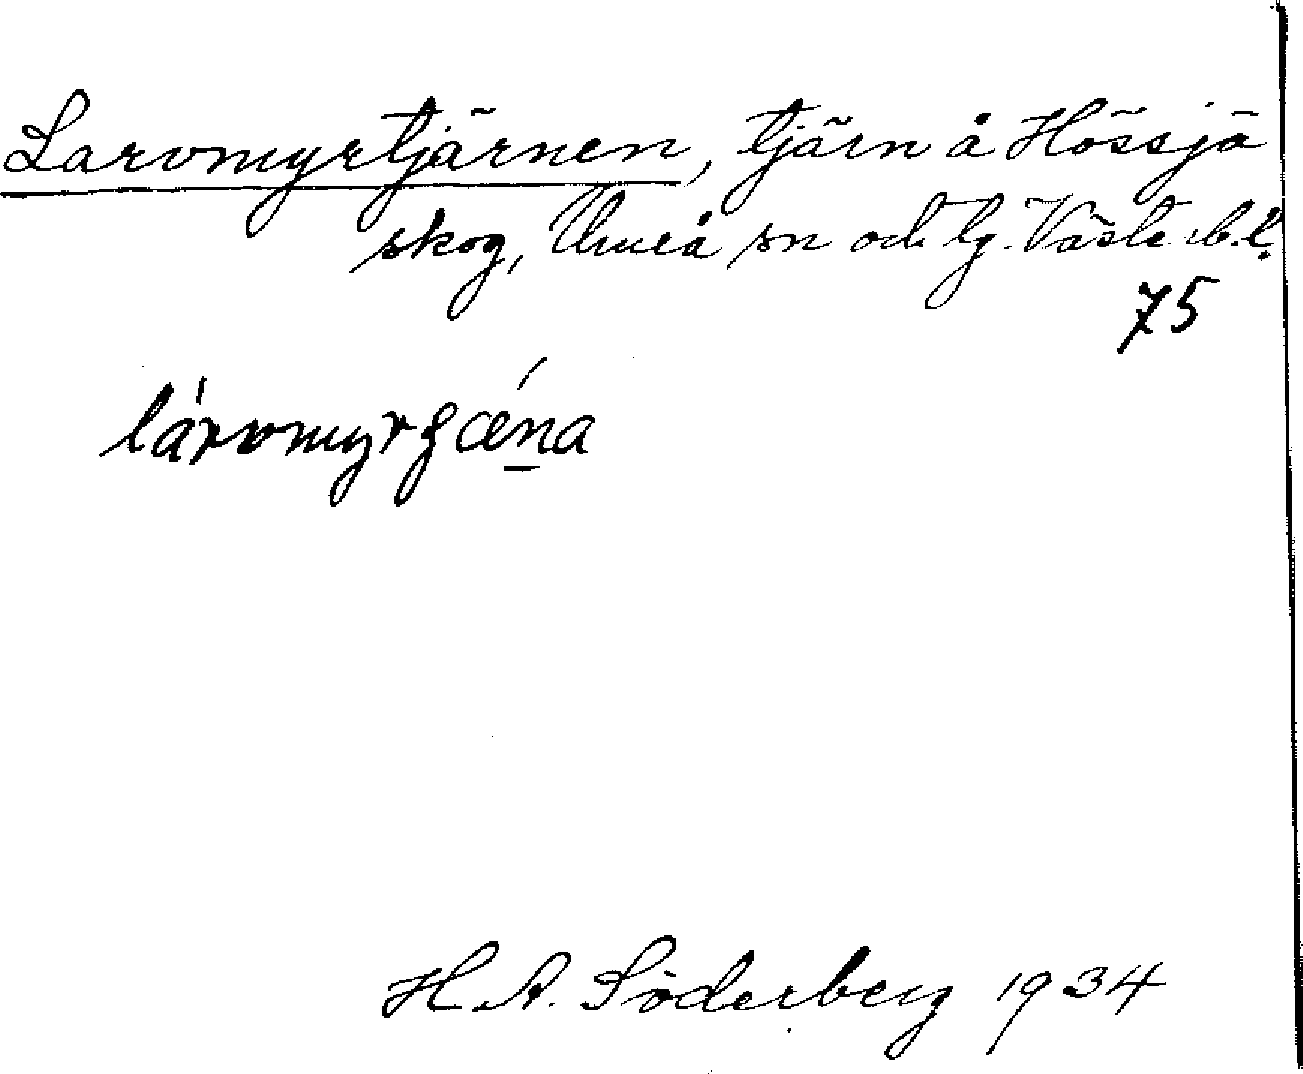 Larvmyrtjärnen, tjärn å Hössjö
skog, Umeå sn och tg. Västerb. l.
75
lárvmyrʂǽna
H. A. Söderberg 1934